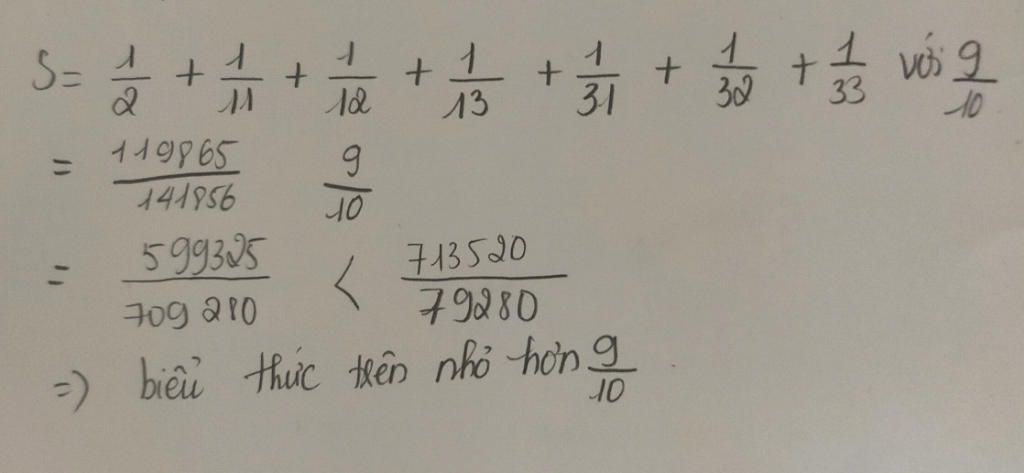 S = 1/2 + 1/11 + 1/12 + 1/13 + 1/31 + 1/32 + 1/33 với 9/10
= 119865/141856 9/10
= 599325/709280 < 713520/79280
=) biểu thức trên nhỏ hơn 9/10